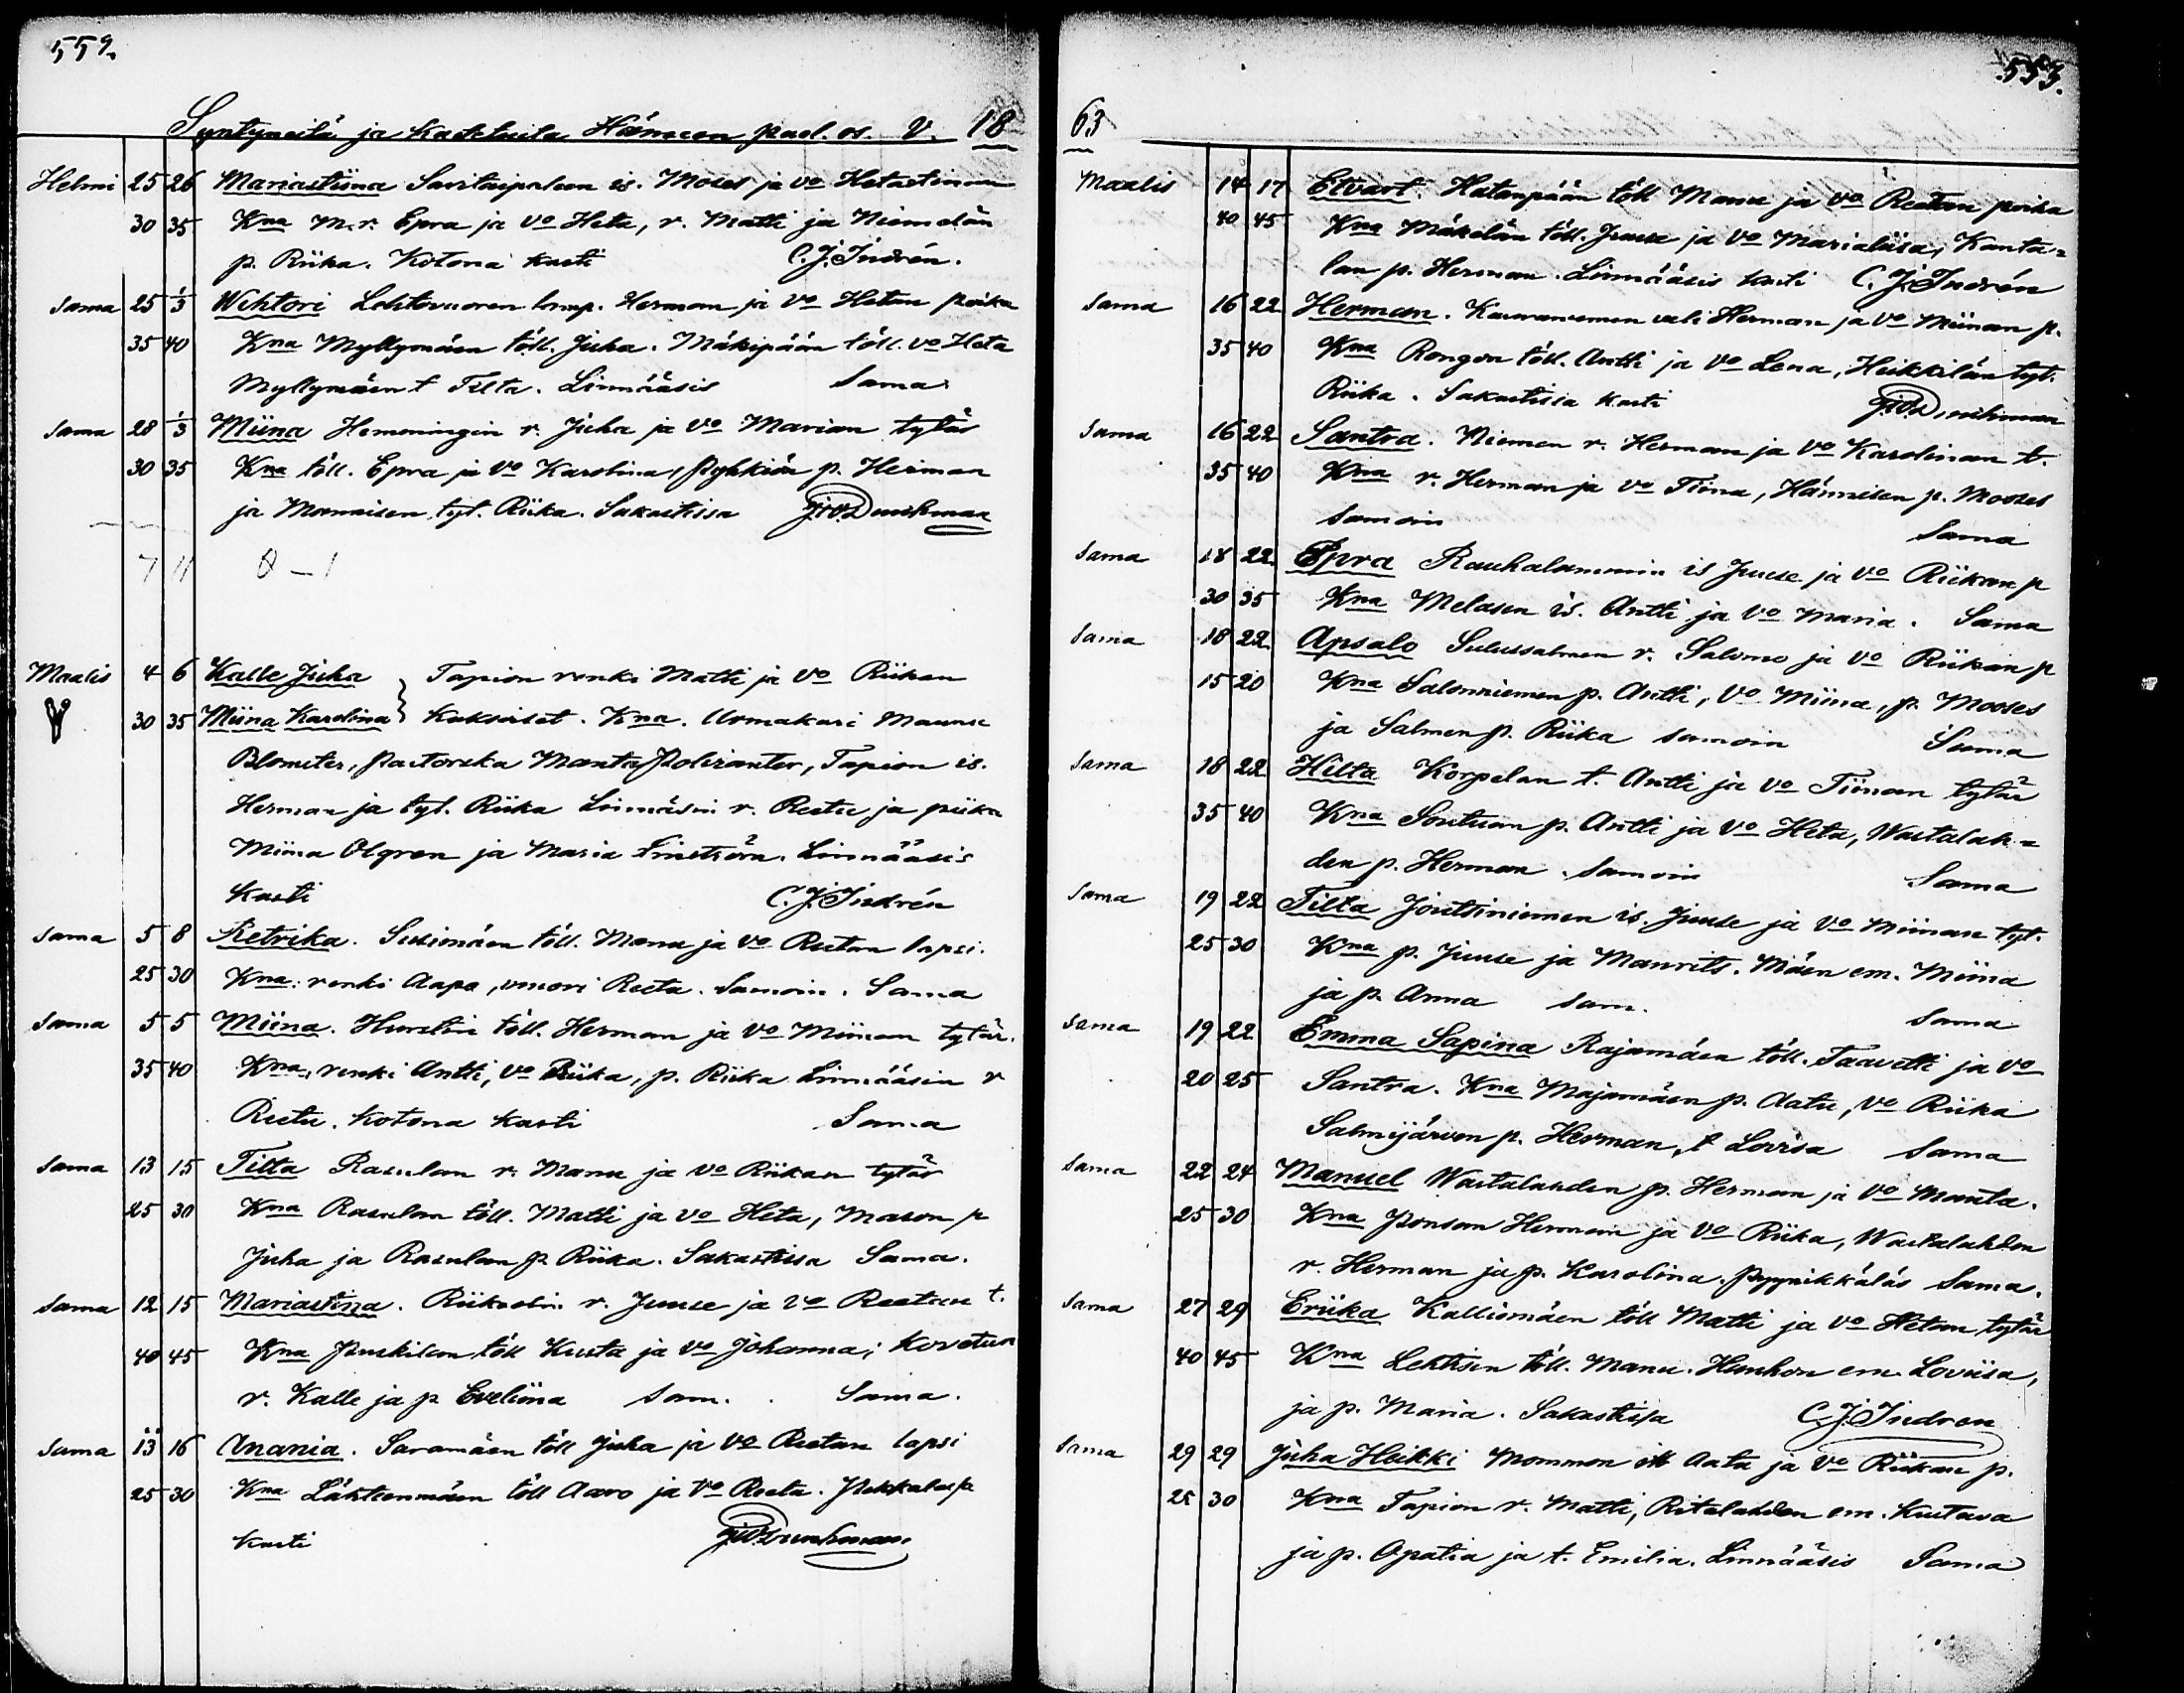 559.
Syntyneitä ja Kastetuita Hämeen puol. os. V. 18
Helmi 25 26 Mariastiina Savitaipaleen is. Moses ja vo Hetastinan
30 35 Kna m. r. Epra ja vo Heta, r. Matti ja Niemelän
p. Riika. Kotona kasti C. J. Indrén.
Sama 25 1/3 Wihtori Lehtovuoren lamp. Herman ja vo Hetan poika
35 40 Kna Myllymäen töll. Juha. Mäkipään töll. vo Heta
Myllymäen t Tilta. Linnääsis Sama
Sama 28 1/3 Miina Hemmingin r. Juha ja vo Marian tytär
30 35 Kna töll. Epra ja vo Karolina, Pyhkiän p. Herman
ja Monnisen tyt. Riika. Sakastissa
7 11 8 – 1
Maalis 4 6 Kalle Juha } Tapion renki Matti ja vo Riikan
30 35 Miina Karolina } Kaksoiset. Kna. Urmakari Maunu
Blomster, Pastorska Manta Polviander, Tapion is.
Herman ja tyt. Riika Linnäsin r. Reetu ja piika
Miina Olgren ja Maria Linström. Linnääsis
kasti C. J. Indrén
Sama 5 8 Retrika. Susimäen töll. Manu ja vo Reetan lapsi.
25 30 Kna: renki Aapa, vmori Reeta. Samoin. Sama
Sama 5 5 Miina. Hurstin töll. Herman ja vo Miinan tytär.
35 40 Kna, renki Antti, vo Riika, p. Riika Linnääsin r
Reetu. Kotona kasti Sama
Sama 13 15 Tilta Rasulan r. Manu ja vo Riikan tytär
25 30 Kna Rasulan töll. Matti ja vo Heta, Mason p
Juha ja Rasulan p Riika. Sakastissa Sama.
Sama 12 15 Mariastina. r. Juuse ja vo Reetan t.
40 45 Kna Puskilan töll Kusta ja vo Johanna; Kovetun
r. Kalle ja p Eveliina Sam. Sama.
Sama 13 16 Anania. Saramäen töll Juha ja vo Reetan lapsi
25 30 Kna Lähteenmäen töll Aaro ja vo Reeta. Pekkalas
kasti
553.
63
Maalis 14 17 Etvart. Hatanpään töll Manu ja vo Reetan poika
40 45 Kna Mäkelän töll. Juuse ja vo Marialiisa, Kanta=
lan p. Herman. Linnääsis kasti C. J. Indrén
Sama 16 22 Herman. Kauraniemen vali Herman ja vo Miinan p.
35 40 Kna Rongon töll. Antti ja vo Lena, Heikkilän tyt.
Riika. Sakastissa kasti
Sama 16 22 Santra. Niemen r. Herman ja vo Karolinan t.
35 40 Kna r. Herman ja vo Tiina, Hännisen p. Mooses
Samoin Sama
Sama 18 22 Epra Rauhalammin is Juuse ja vo Riikan p
30 35 Kna Melasen is. Antti ja vo Maria. Sama
Sama 18 22 Apsalo Sulussalmen r. Salomo ja vo Riikan p
15 20 Kna Salonniemen p. Antti, vo Miina, p. Mooses
ja Salmen p. Riika samoin Sama
Sama 18 22 Hilta Korpelan t. Antti ja vo Tiinan tytär
35 40 Kna Sontuan p. Antti ja vo Heta, Wastalah=
den p. Herman. Samoin Sama
Sama 19 22 Tilta Joutsiniemen is. Juuse ja vo Miinan tyt.
25 30 Kna p. Juuse ja Maurits. Mäen em. Miina
ja p. Anna sam. Sama
Sama 19 22 Emma Sapina Rajamäen töll. Taavetti ja vo
20 25 Santra. Kna Majamäen p. Aatu, vo Riika
Salmijärven p. Herman, t Lovisa Sama
Sama 22 24 Manuel Wastalahden p. Herman ja vo Manta.
25 30 Kna Ponsan Herman ja vo Riika, Wastalahden
r. Herman ja p. Karolina. Pyynikkäläs Sama.
Sama 27 29 Eriika Kalliomäen töll Matti ja vo Hetan tytär
40 45 Kna Lehtisen töll. Manu. Hauhon em. Loviisa,
ja p. Maria. Sakastissa C. J. Indren
Sama 29 29 Juha Heikki Mommon itt Aata ja vo Riikan p.
25 30 Kna Tapion r. Matti, Ritalahden em. Kustava
ja p. Opatia ja t. Emilia. Linnääsis Sama